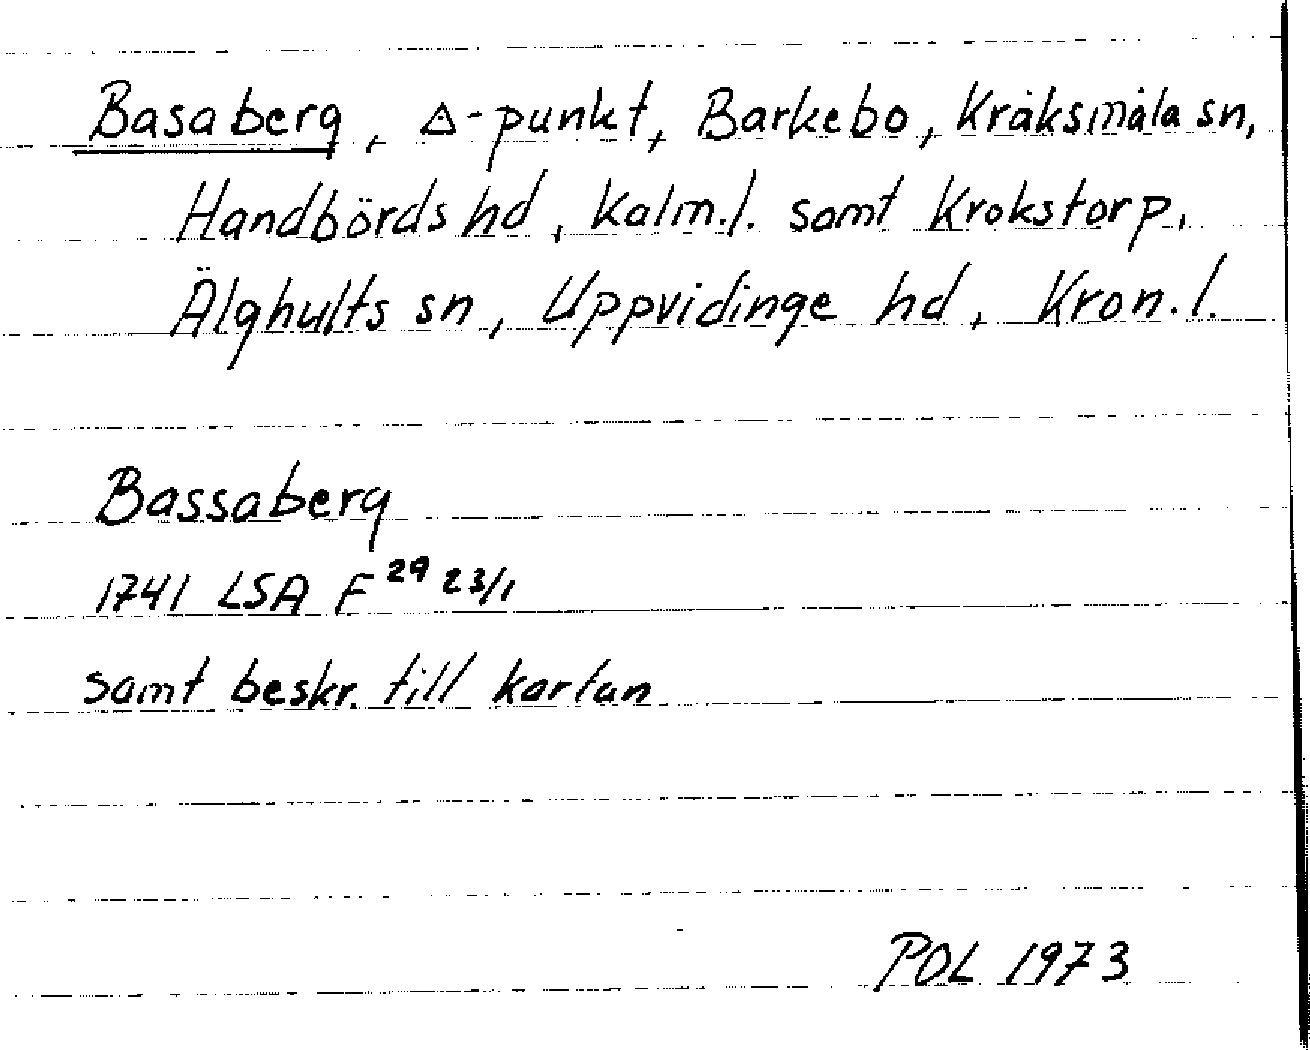 Basaberg, △-punkt, Barkebo, Kråksmåla sn,
Handbörds hd, Kalm.l. samt Krokstorp,
Älghults sn, Uppvidinge hd, Kron.l.
Bassaberg
1741 LSA F²⁹ 23/1
samt beskr. till kartan
POL 1973